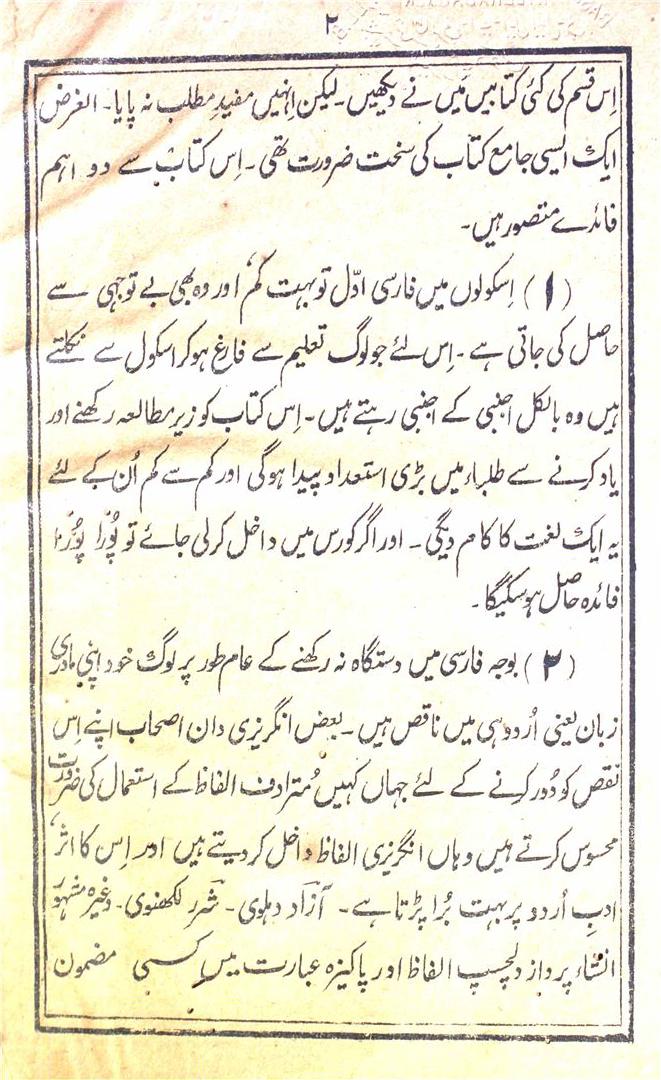 ۲
اِس قسم کی کئی کتابیں میں نے دیکھیں۔ لیکن اِنہیں مفیدِ مطلب نہ پایا۔ الغرض
ایک ایسی جامع کتاب کی سخت ضرورت تھی۔ اِس کتاب سے دو اہم
فائدے متصور ہیں۔
(۱) اِسکولوں میں فارسی اوّل تو بہت کم اور وہ بھی بے توجہی سے
حاصل کی جاتی ہے۔ اِس لئے جو لوگ تعلیم سے فارغ ہوکر اسکول سے نکلتے
ہیں وہ بالکل اجنبی کے اجنبی رہتے ہیں۔ اِس کتاب کو زیر مطالعہ رکھنے اور
یاد کرنے سے طلباء میں بڑی استعداد پیدا ہوگی اور کم سے کم اُن کے لئے
یہ ایک لغت کا کام دیگی۔ اور اگر کورس میں داخل کرلی جائے تو پُورا پُورا
فائدہ حاصل ہوسکیگا۔
(۲) بوجہ فارسی میں دستگاہ نہ رکھنے کے عام طور پر لوگ خود اپنی مادری
زبان یعنی اُردو ہی میں ناقص ہیں۔ بعض انگریزی دان اصحاب اپنے اِس
نقص کو دُور کرنے کے لئے جہاں کہیں مُترادف الفاظ کے استعمال کی ضرورت
محسوس کرتے ہیں وہاں انگریزی الفاظ داخل کردیتے ہیں اور اِس کا اثر
ادبِ اُردو پر بہت بُرا پڑتا ہے۔ آزاد دہلوی۔ شرر لکھنوی۔ وغیرہ مشہور
انشاء پرداز دلچسپ الفاظ اور پاکیزہ عبارت میں کسی مضمون